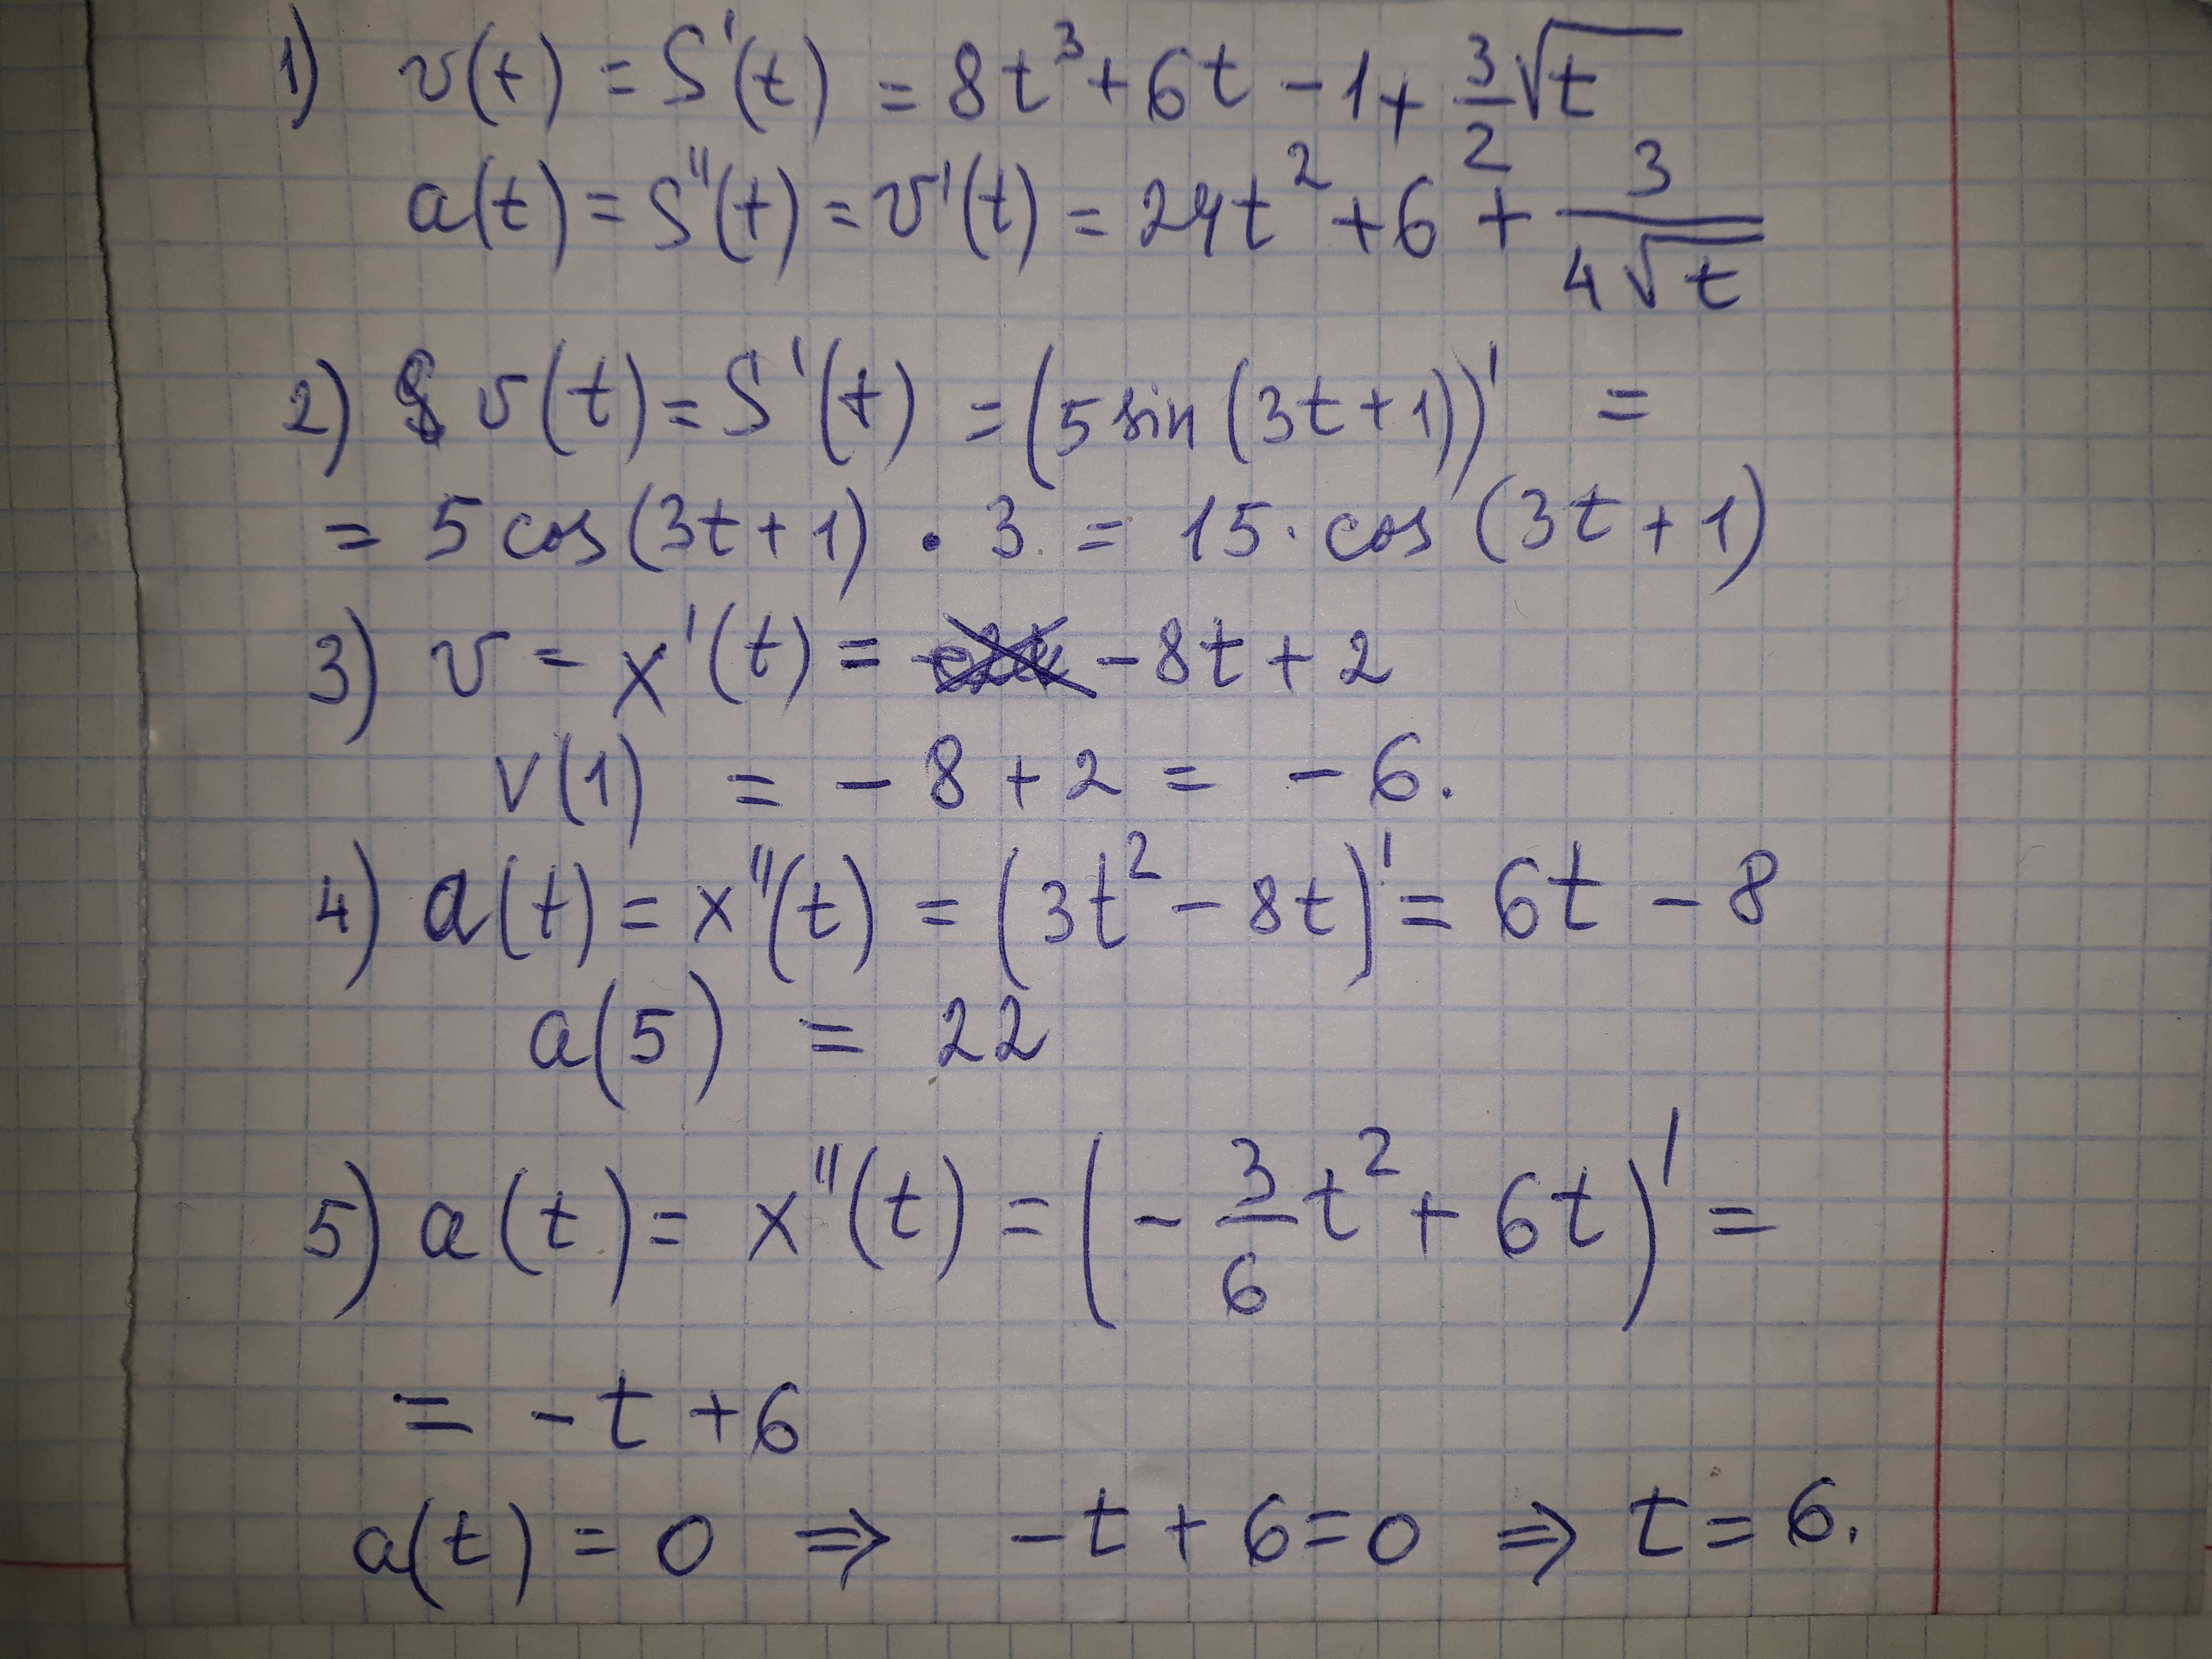 1) v(t) = S'(t) = 8t³ + 6t - 1 + 3/2 √t
a(t) = S''(t) = v'(t) = 24t² + 6 + 3/(4√t)
2) v(t) = S'(t) = (5 sin (3t + 1))' =
= 5 cos (3t + 1) · 3 = 15 · cos (3t + 1)
3) v = x'(t) = -8t + 2
v(1) = -8 + 2 = -6.
4) a(t) = x''(t) = (3t² - 8t)' = 6t - 8
a(5) = 22
5) a(t) = x''(t) = (-3/6 t² + 6t)' =
= -t + 6
a(t) = 0 ⇒ -t + 6 = 0 ⇒ t = 6.